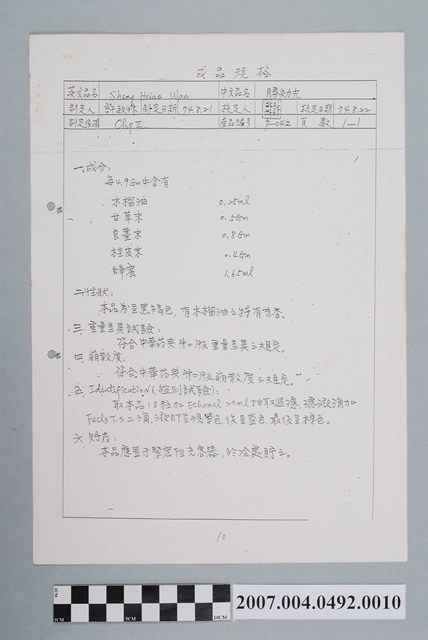 成品規格
英文品名 Sheng Hsiao Wan 中文品名
制定人 制定日期 74.8.21 核定人 核定日期 74.8.22
制定依據 Chp II 產品編號 P-042 頁數 1-1
一.成分:
每4.9Gm中含有
木榴油 0.25ml
甘草末 0.5Gm
0.8Gm
桂皮末 0.4Gm
蜂蜜 1.65ml
二.性狀:
本品為呈黑褐色,有木榴油之特有香。
三.重量差異試驗:
符合中華药典 重量差異之規定。
四.崩散度:
符合中華药典 崩散度之規定。
五.Identification(鑑別試驗):
取本品18粒加Ethanol 20ml抽取過濾,濾液滴加
FeCl3 T.S 二滴,液 呈 色,後呈藍色,最後呈 色。
六.貯存:
本品應置于緊密 容器,於冷處貯之。
10
2007.004.0492.0010